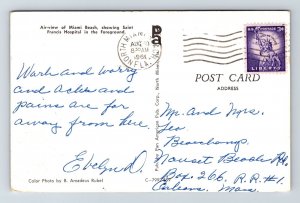 Air-view of Miami Beach, showing Saint
Francis Hospital in the Foreground.
NORTH MIAMI
AUG
8 30 AM
FLA.
3¢
LIBERTY
POST CARD
ADDRESS
Work and worry
and aches and
pains are far
away from here.
Evelyn
Mr. and Mrs.
Leo
Beauchamp
Nauset Beach Rd.
Box 266 R.R. #1
Orleans, Mass
Color Photo by B. Amadeus Rubel